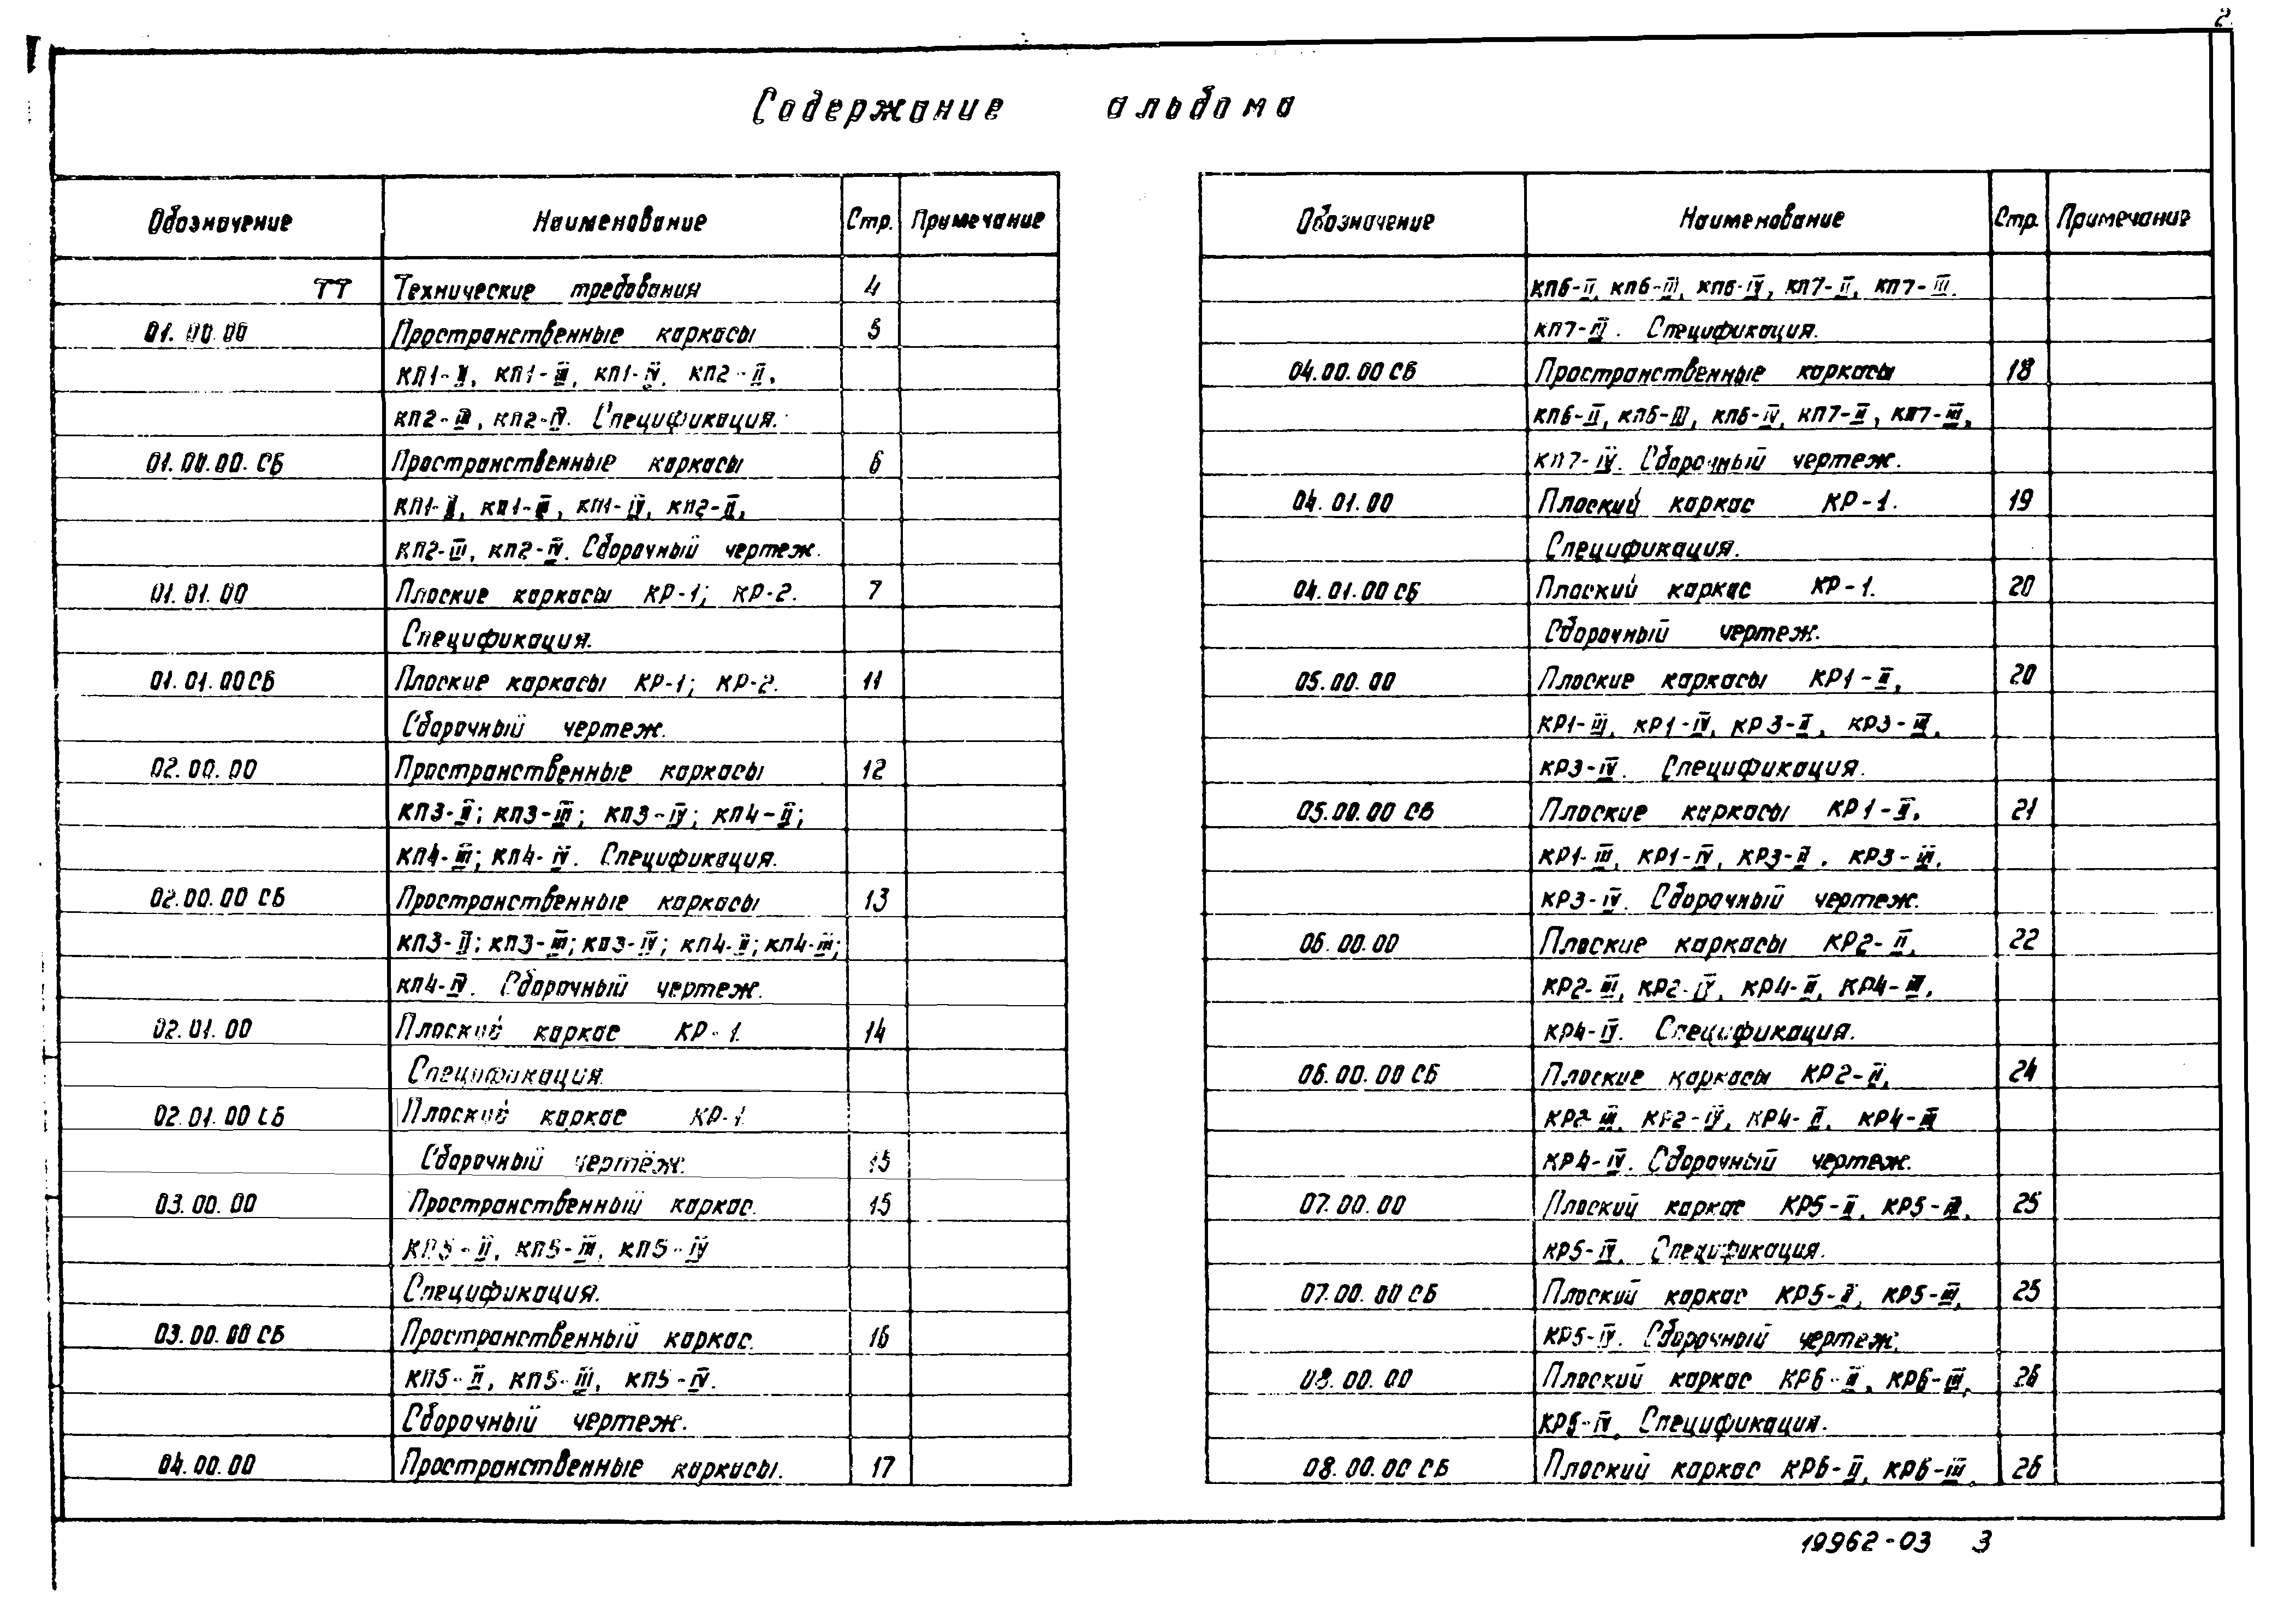 2
Содержание альбома
Обозначение Наименование Стр. Примечание
ТТ Технические требования 4
01.00.00 Пространственные каркасы 5
КП1-II, КП1-III, КП1-IV, КП2-II,
КП2-III, КП2-IV. Спецификация.
01.00.00.СБ Пространственные каркасы 6
КП1-II, КП1-III, КП1-IV, КП2-II,
КП2-III, КП2-IV. Сборочный чертеж.
01.01.00 Плоские каркасы КР-1; КР-2. 7
Спецификация.
01.01.00СБ Плоские каркасы КР-1; КР-2. 11
Сборочный чертеж.
02.00.00 Пространственные каркасы 12
КП3-II; КП3-III; КП3-IV; КП4-II;
КП4-III; КП4-IV. Спецификация.
02.00.00 СБ Пространственные каркасы 13
КП3-II; КП3-III; КП3-IV; КП4-II; КП4-III;
КП4-IV. Сборочный чертеж.
02.01.00 Плоский каркас КР-1. 14
Спецификация.
02.01.00 СБ Плоский каркас КР-1.
Сборочный чертёж. 15
03.00.00 Пространственный каркас. 15
КП5-II, КП5-III, КП5-IV
Спецификация.
03.00.00 СБ Пространственный каркас. 16
КП5-II, КП5-III, КП5-IV.
Сборочный чертеж.
04.00.00 Пространственные каркасы. 17
Обозначение Наименование Стр. Примечание
КП6-II, КП6-III, КП6-IV, КП7-II, КП7-III.
КП7-IV. Спецификация.
04.00.00 СБ Пространственные каркасы 18
КП6-II, КП6-III, КП6-IV, КП7-II, КП7-III,
КП7-IV. Сборочный чертеж.
04.01.00 Плоский каркас КР-1. 19
Спецификация.
04.01.00 СБ Плоский каркас КР-1. 20
Сборочный чертеж.
05.00.00 Плоские каркасы КР1-II, 20
КР1-III, КР1-IV, КР3-II, КР3-III,
КР3-IV. Спецификация.
05.00.00 СБ Плоские каркасы КР1-II, 21
КР1-III, КР1-IV, КР3-II, КР3-III,
КР3-IV. Сборочный чертеж.
06.00.00 Плоские каркасы КР2-II, 22
КР2-III, КР2-IV, КР4-II, КР4-III,
КР4-IV. Спецификация.
06.00.00 СБ Плоские каркасы КР2-II, 24
КР2-III, КР2-IV, КР4-II, КР4-III
КР4-IV. Сборочный чертеж.
07.00.00 Плоский каркас КР5-II, КР5-III, 25
КР5-IV. Спецификация.
07.00.00 СБ Плоский каркас КР5-II, КР5-III, 25
КР5-IV. Сборочный чертеж.
08.00.00 Плоский каркас КР6-II, КР6-III, 26
КР6-IV, Спецификация.
08.00.00 СБ Плоский каркас КР6-II, КР6-III, 26
19962-03 3